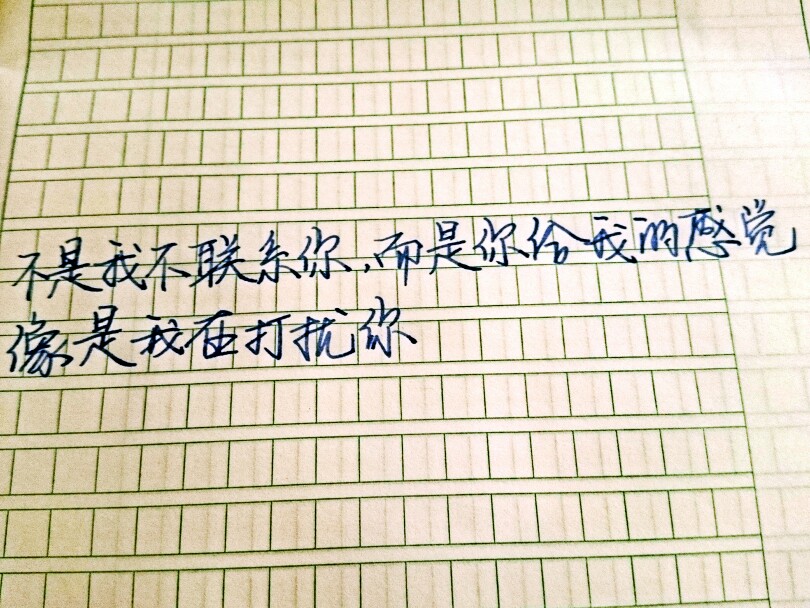 不是我不联系你，而是你给我的感觉
像是我在打扰你